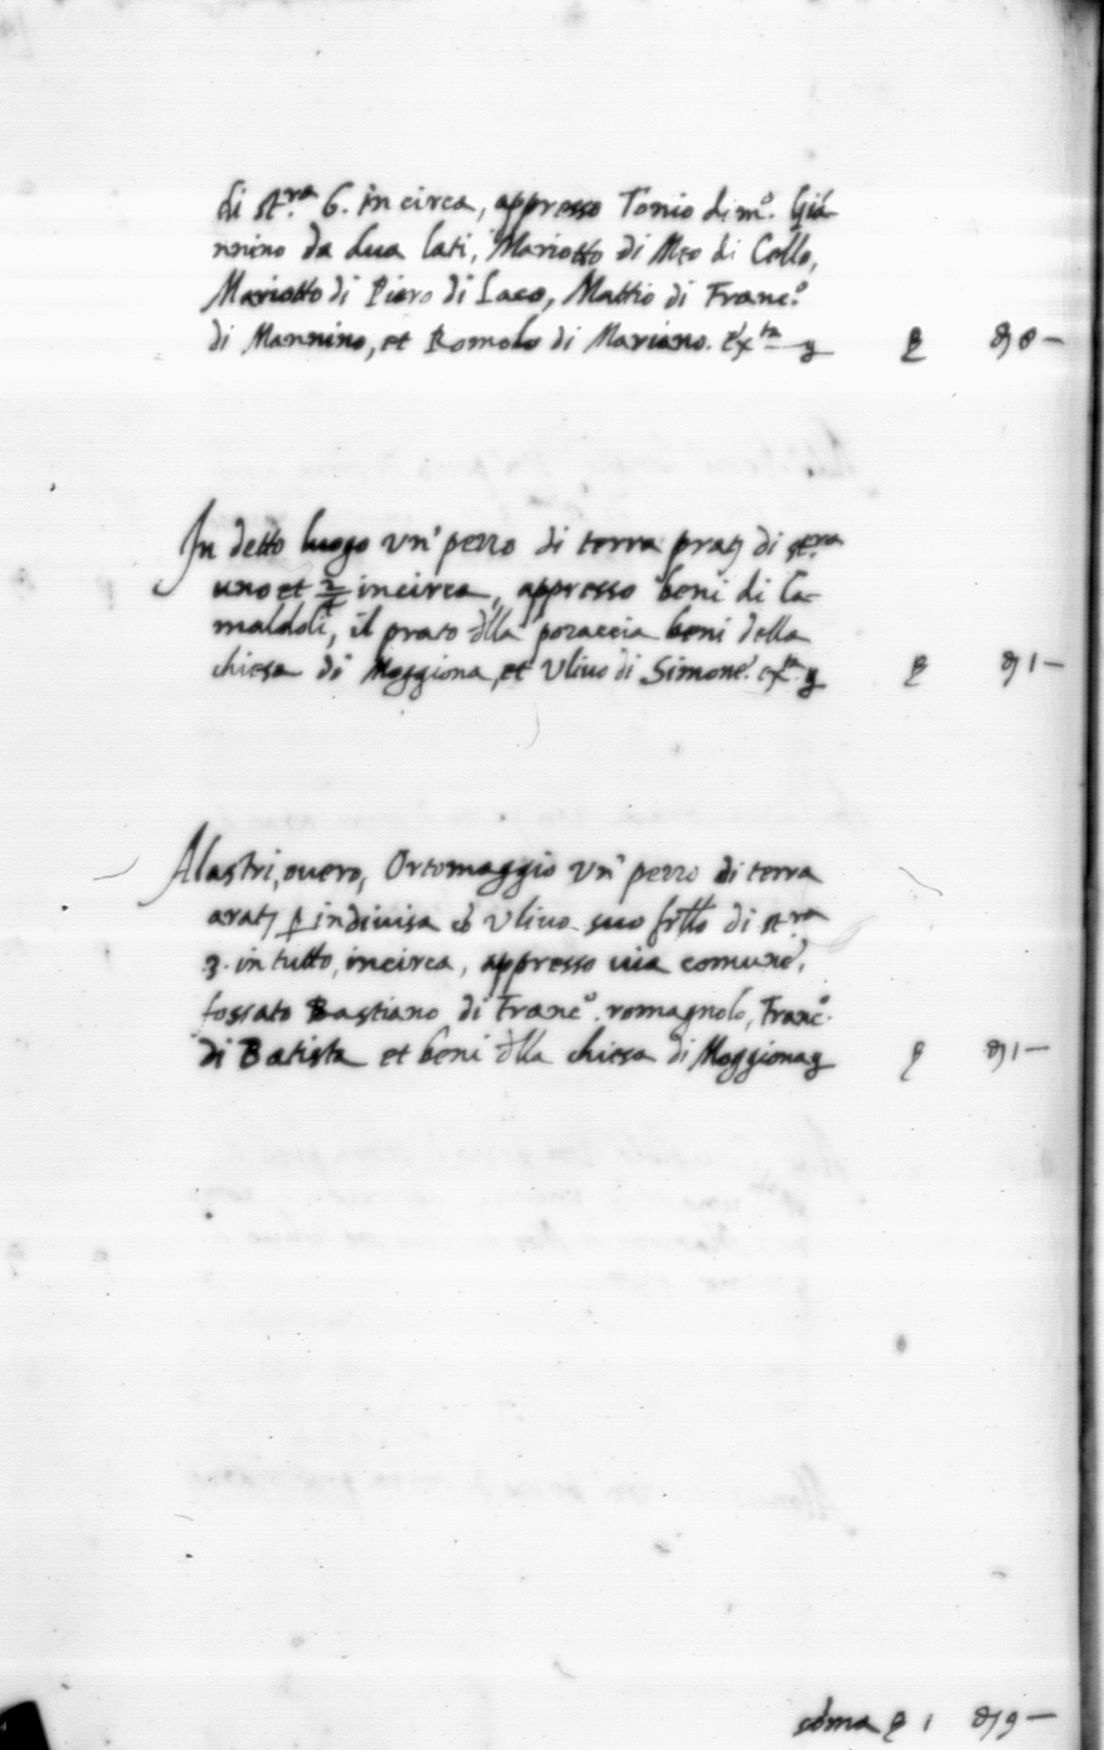 di st.ra 6. in circa, appresso Tonio di m.o Giá-
nnino da dua lati, Mariotto di Meo di Cello,
Mariotto di Piero di Iaco, Mattio di Franc.o
di Mannino, et Romolo di Mariano. Ex.ta
In detto luogo vn' pezzo di terra prat di st.ra
uno et incirca, appresso beni di Ca-
maldoli, il prato dlla pozaccia beni della
chiesa di Moggiona, et Vliuo di Simone. ex.ta
Alastri, ouero, Ortomaggio vn' pezzo di terra
arat p indiuisa Vliuo suo frllo di st.ra
3. in tutto, incirca, appresso uia comune,
fossato Bastiano di Franc.o romagnolo, Franc.o
di Batista et beni dlla chiesa di Moggiona
sóma 1 9 —